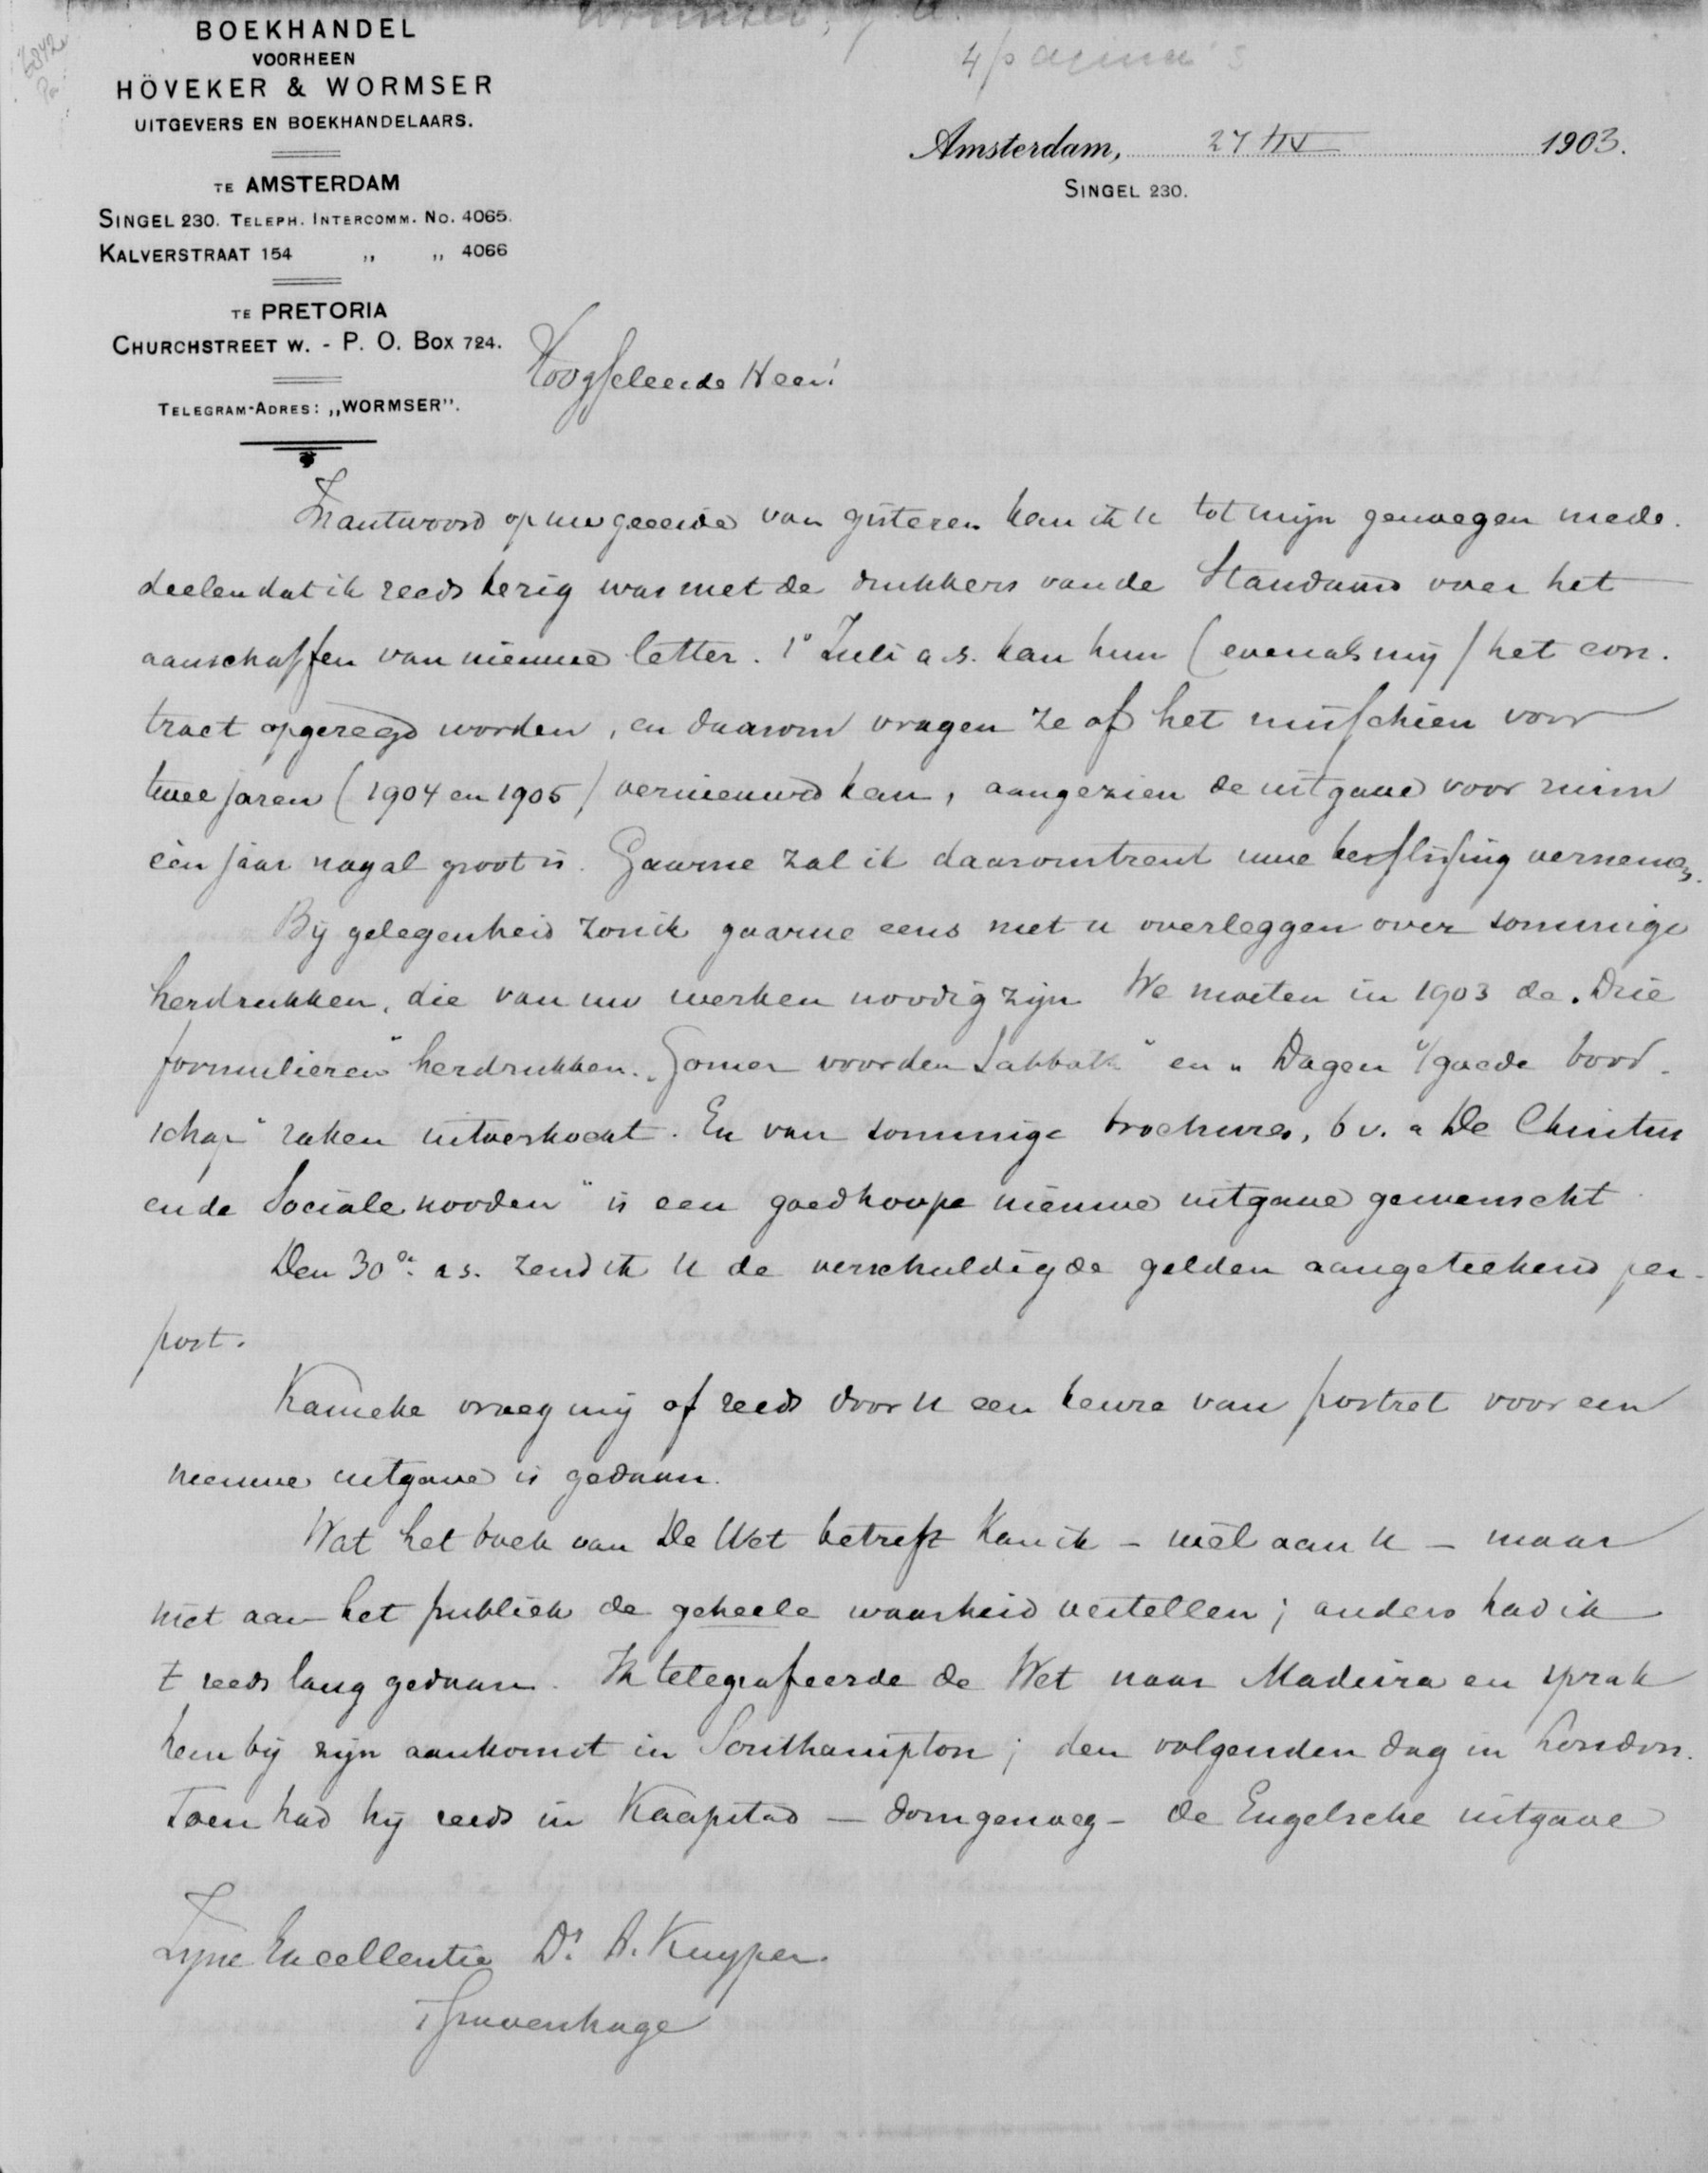 Wormser, J. A.
4 pagina's
BOEKHANDEL
VOORHEEN
HÖVEKER & WORMSER
UITGEVERS EN BOEKHANDELAARS.
TE AMSTERDAM
SINGEL 230. TELEPH. INTERCOMM. No. 4065.
KALVERSTRAAT 154 „ „ 4066
TE PRETORIA
CHURCHSTREET W. - P. O. BOX 724.
TELEGRAM-ADRES: „WORMSER".
Amsterdam, 27 1903.
SINGEL 230.
Hooggeleerde Heer!
In antwoord op uw geëerde van gisteren kan ik u tot mijn genoegen mede-
deelen dat ik reeds bezig was met de drukkers van de Standaard over het
aanschaffen van nieuwe letter. 1° Juli a.s. kan hun (evenals mij) het con-
tract opgezegd worden, en daarom vragen ze of het misschien voor
twee jaren (1904 en 1905) vernieuwd kan, aangezien de uitgave voor ruim
één jaar nogal groot is. Gaarne zal ik daaromtrent uwe beslissing vernemen.
Bij gelegenheid zou ik gaarne eens met u overleggen over sommige
herdrukken, die van uw werken noodig zijn. We moeten in 1903 de „Drie
formulieren" herdrukken. „Gomer voor den Sabbath" en „Dagen v/goede bood-
schap" raken uitverkocht. En van sommige brochures, bv. „De Christus
en de Sociale nooden" is een goedkoope nieuwe uitgave gewenscht.
Den 30en a.s. zend ik U de verschuldigde gelden aangeteekend per
post.
Kameke vroeg mij of reeds door U een keuze van portret voor een
nieuwe uitgave is gedaan.
Wat het boek van De Wet betreft kan ik - wèl aan U - maar
niet aan het publiek de geheele waarheid vertellen; anders had ik
't reeds lang gedaan. Ik telegrafeerde de Wet naar Madeira en sprak
hem bij zijn aankomst in Southampton; den volgenden dag in London.
Toen had hij reeds in Kaapstad — dom genoeg - de Engelsche uitgave
Zijne Excellentie Dr. A. Kuyper
's Gravenhage